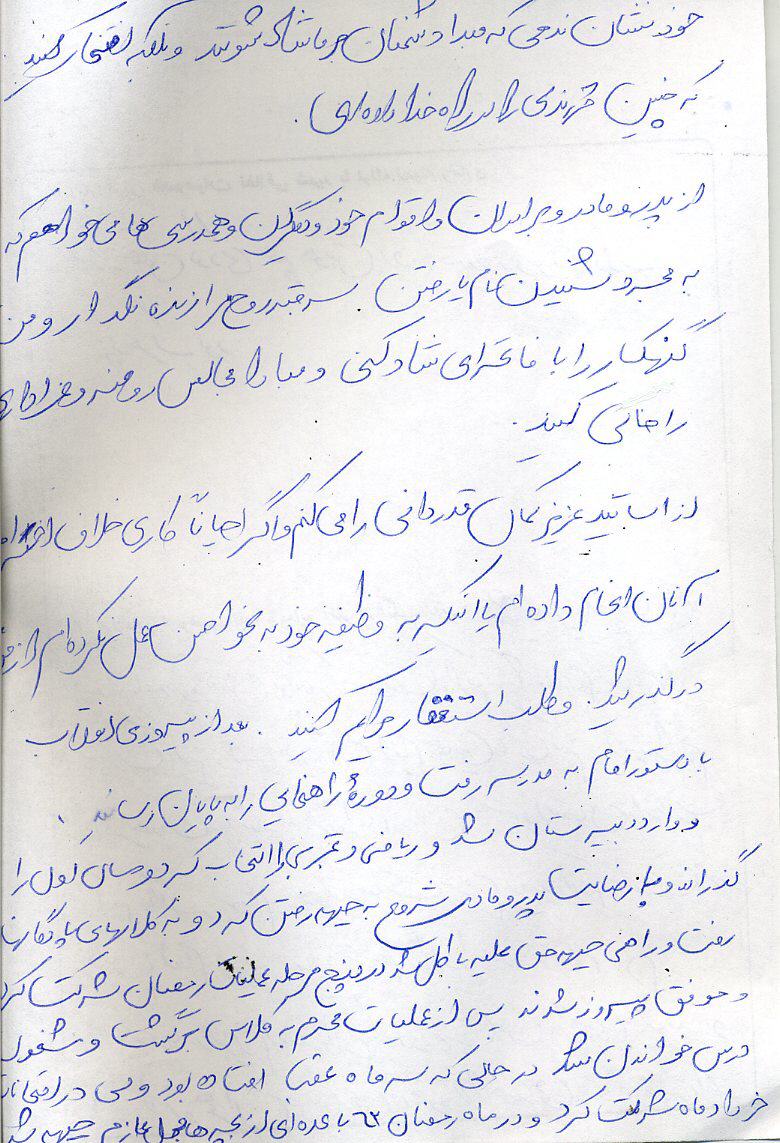 خود نشان ندهی که مبدا دشمنان بر ما شاد شوند و بلکه افتخار کنید
که چنین فرزندی را در راه خدا داده‌ای .
از پدر و مادر و برادران و اقوام خود و دیگران و همدرسی ها می خواهم که
به مجرد شنیدن نام یا رفتن سر قبر روح مرا زنده نگه دار و من
گنهکار را با فاتحه‌ای شاد کنی و مبادا مجالس روضه و عزاداری
را خالی کنید .
از اساتید عزیز کمال قدردانی را می کنم و اگر احیاناً کاری خلاف
آنان انجام داده ام یا اینکه به وظیفه خود به نحو احسن عمل نکرده ام از من
در گذرید و طلب استغفار برایم کنید . بعد از پیروزی انقلاب
با دستور امام به مدرسه رفت و دورهٔ راهنمایی را به پایان رسانید
و وارد دبیرستان شد و ریاضی و تجربی را انتخاب کرد و سال اول را
گذراند و با رضایت پدر و مادر شروع به جبهه رفتن کرد و به کلاسهای
رفت و راهی جبهه حق علیه باطل شد در پنج مرحله عملیات رمضان شرکت کرد
و موفق پیروز شدند پس از عملیات محرم به کلاس برگشت و مشغول
درس خواندن شد در حالی که سه ماه عقب افتاده بود ولی در امتحانات
خرداد ماه شرکت کرد و در ماه رمضان ۶۲ با عده‌ای از بچه های عازم جبهه شد